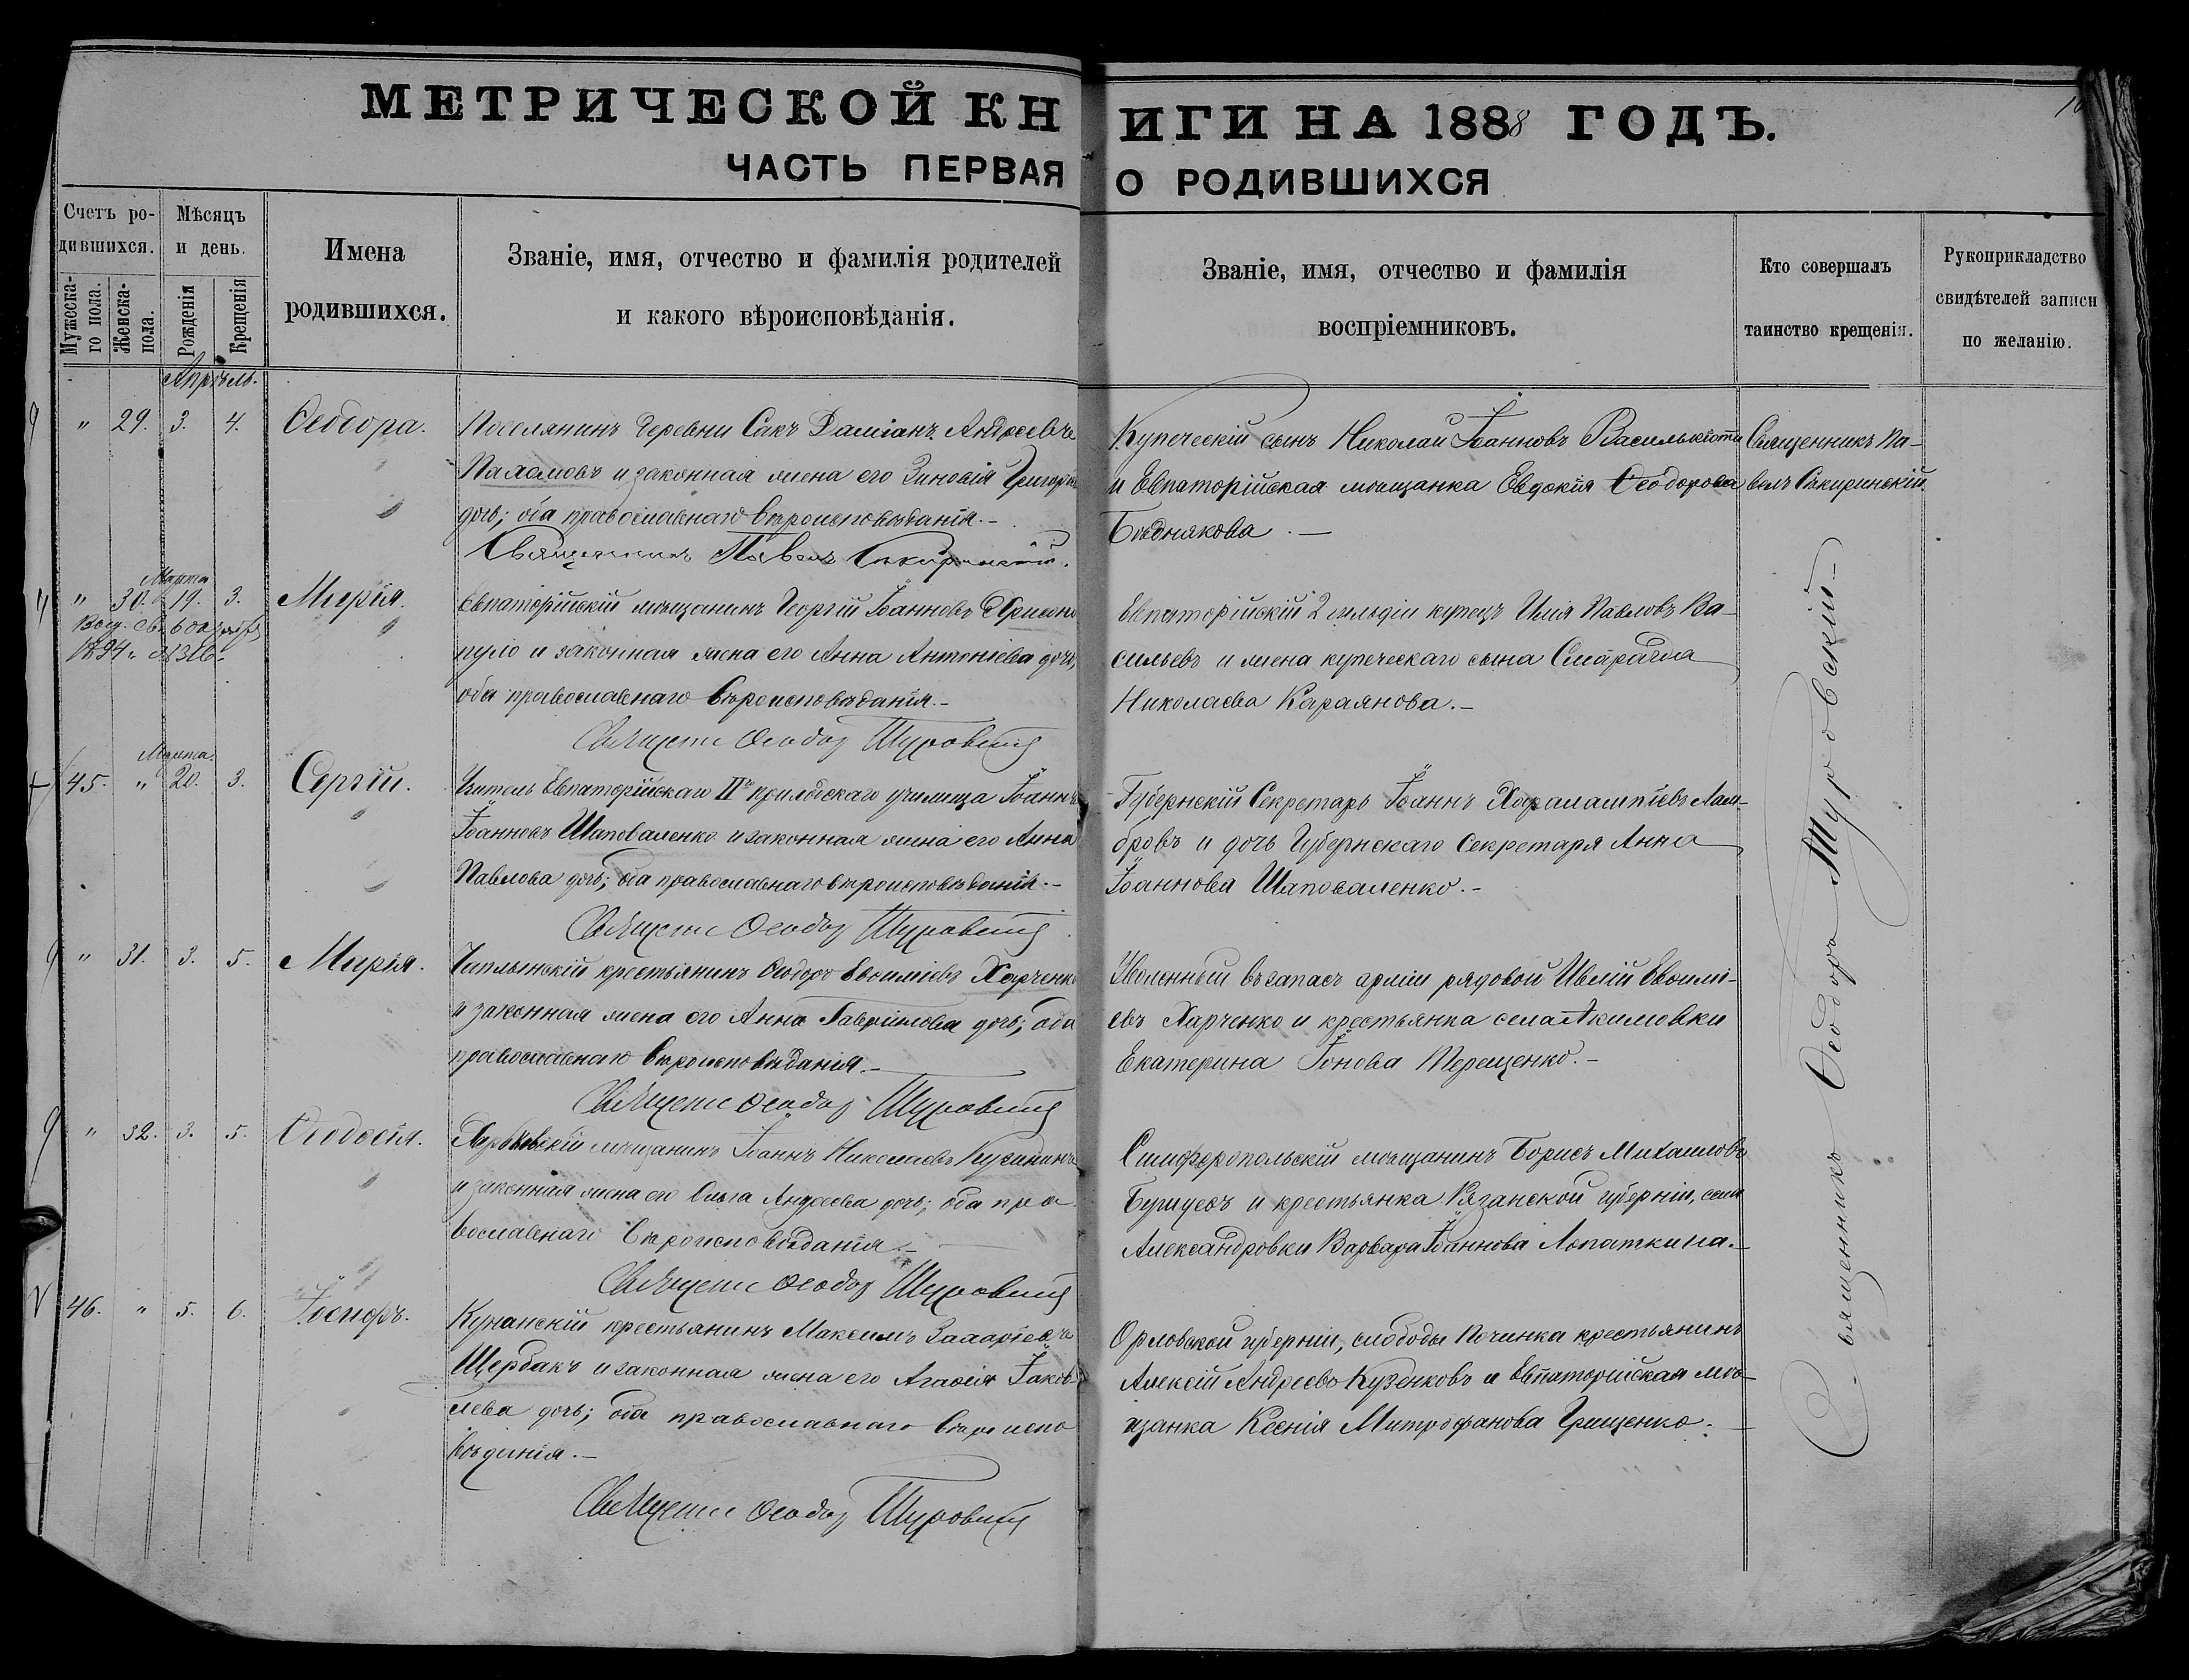 МЕТРИЧЕСКОЙ КНИГИ НА 1888 ГОДЪ.
ЧАСТЬ ПЕРВАЯ О РОДИВШИХСЯ
Счетъ родившихся.
Мужескаго пола.
Женска- пола.
Мѣсяцъ и день.
Рожденія
Крещенія
Имена
родившихся.
Званіе, имя, отчество и фамилія родителей
и какого вѣроисповѣданія.
Званіе, имя, отчество и фамилія
воспріемниковъ.
Кто совершалъ
таинство крещенія.
Рукоприкладство
свидѣтелей записи
по желанію.
Апрѣль.
" 29. 3. 4. Ѳеодора.
Поселянинъ деревни Сакъ Даміанъ Андреевъ
Пахомовъ и законная жена его Зиновія Григорьева
дочь; оба православнаго вѣроисповѣданія.–
Священникъ Павелъ Сикиринскій.
Купеческій сынъ Николай Іоанновъ
и Евпаторійская мѣщанка Евдокія Ѳеодорова
Бѣднякова.–
Священникъ Па-
велъ Сикиринскій.
Марта
" 30. 19. 3. Марія.
1894
Евпаторійскій мѣщанинъ Георгій Іоанновъ
пуло и законная жена его Анна Антоніева дочь,
оба православнаго вѣроисповѣданія.–
Священникъ Ѳеодоръ Туровскій
Евпаторійскій 2 гильдіи купецъ Илія Павловъ Ва-
сильевъ и жена купеческаго сына Смарагда
Николаева Караянова.–
Марта.
45. " 20. 3. Сергій.
Учитель Евпаторійскаго II приходскаго училища Іоаннъ
Іоанновъ Шаповаленко и законная жена его Анна
Павлова дочь; оба православнаго вѣроисповѣданія.–
Священникъ Ѳеодоръ Туровскій
Губернскій Секретарь Іоаннъ Харалампіевъ Лам-
бровъ и дочь Губернскаго Секретаря Анна
Іоаннова Шаповаленко.–
" 31. 3. 5. Марія.
Чаплынскій крестьянинъ Ѳеодоръ Евѳиміевъ Харченко
и законная жена его Анна Гавріилова дочь; оба
православнаго вѣроисповѣданія.–
Священникъ Ѳеодоръ Туровскій
Уволенный въ запасъ арміи рядовой Ивлій Евѳимі-
евъ Харченко и крестьянка села Акимовки
Екатерина Іонова Терещенко.–
" 32. 3. 5. Ѳеодосія.
мѣщанинъ Іоаннъ Николаевъ
и законная жена его Ольга Андреева дочь; оба пра-
вославнаго вѣроисповѣданія.–
Священникъ Ѳеодоръ Туровскій
Симферопольскій мѣщанинъ Борисъ Михаиловъ
и крестьянка Рязанской губерніи, села
Александровки Варвара Іоаннова Лопаткина.–
46. " 5. 6. Іосифъ.
крестьянинъ Максимъ Захаріевъ
Щербакъ и законная жена его Агафія Іаков-
лева дочь; оба православнаго вѣроиспо-
вѣданія.–
Священникъ Ѳеодоръ Туровскій
Орловской губерніи, слободы Починка крестьянинъ
Алексій Андреевъ Кузенковъ и Евпаторійская мѣ-
щанка Ксенія Митрофанова Грищенко.–
Священникъ Ѳеодоръ Туровскій–